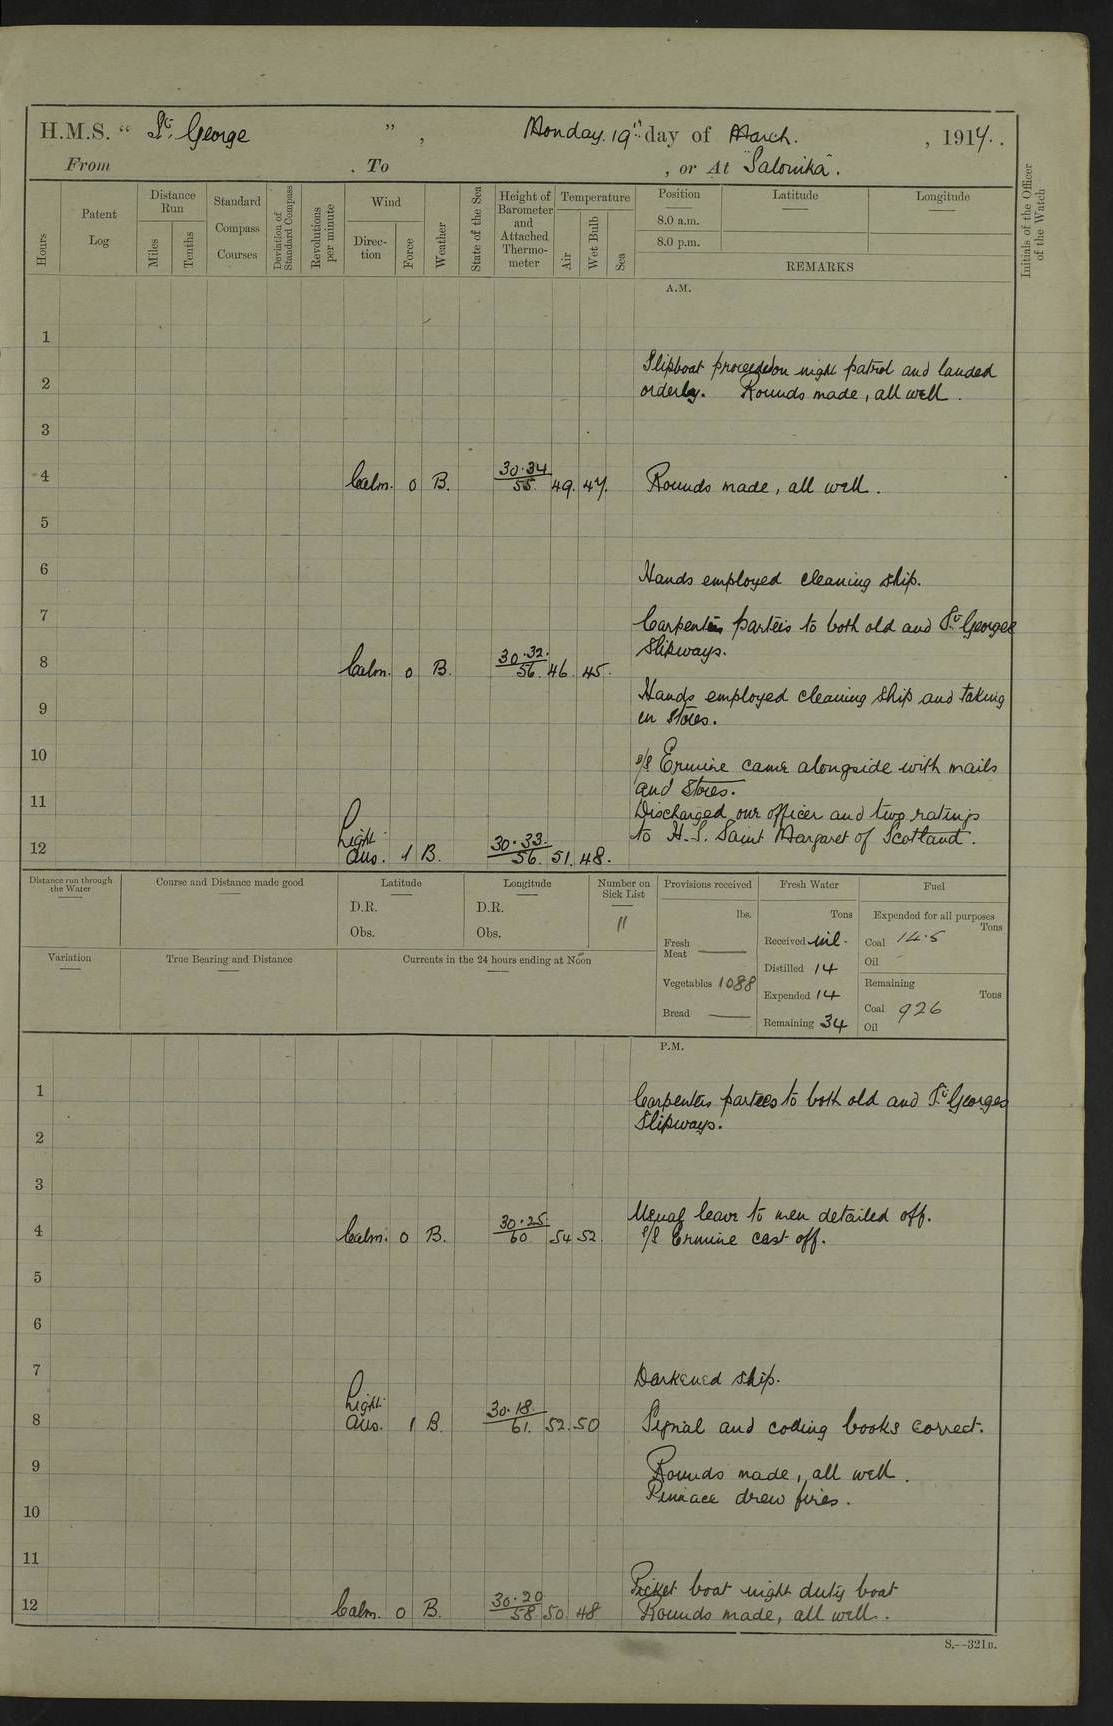 H.M.S. “ St. George ” , Monday. 19th day of March. , 1917.
From . To , or At "Salonika".
Hours
Patent Log
Distance Run
Miles Tenths
Standard Compass Courses
Deviation of Standard Compass
Revolutions per minute
Wind
Direction Force
Weather
State of the Sea
Height of Barometer and Attached Thermometer
Temperature
Air Wet Bulb Sea
Position Latitude Longitude
8.0 a.m.
8.0 p.m.
REMARKS
Initials of the Officer of the Watch
A.M.
1
Slipboat proceeded on night patrol and landed
2 orderly. Rounds made, all well.
3
4 Calm. 0 B. 30.34 55. 49. 47. Rounds made, all well.
5
6 Hands employed cleaning ship.
7 Carpenters parteis to both old and St. Georges
Slipways.
8 Calm. 0 B. 30.32. 56. 46. 45.
Hands employed cleaning ship and taking
9 in stores.
10 s/s Ermine came alongside with mails
and stores.
11 Discharged our officer and two ratings
Light to H.S. Saint Margaret of Scotland.
12 Airs. 1 B. 30.33. 56. 51. 48.
Distance run through the Water
Course and Distance made good
Latitude
D.R.
Obs.
Longitude
D.R.
Obs.
Number on Sick List
11
Provisions received
lbs.
Fresh Meat ——
Vegetables 1088
Bread ——
Fresh Water
Tons
Received nil.
Distilled 14
Expended 14
Remaining 34
Fuel
Expended for all purposes
Tons
Coal 14.5
Oil
Remaining
Tons
Coal 926
Oil
Variation
True Bearing and Distance
Currents in the 24 hours ending at Noon
P.M.
1 Carpenters partees to both old and St. Georges
Slipways.
2
3
Usual leave to men detailed off.
4 Calm. 0 B. 30.25 60 54 52 s/s Ermine cast off.
5
6
7 Darkened ship.
Light
8 Airs. 1 B. 30.18. 61. 52. 50 Signal and coding books correct.
9 Rounds made, all well.
Pinnace drew fires.
10
11
Picket boat night duty boat
12 Calm. 0 B. 30.20 58 50. 48 Rounds made, all well.
S.--321D.